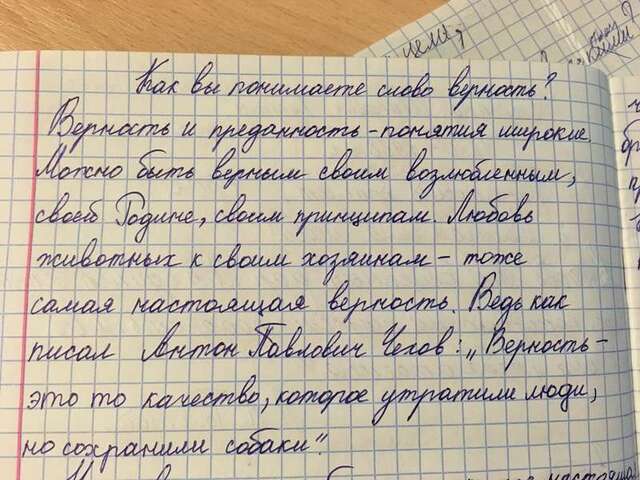 Как вы понимаете слово верность?
Верность и преданность - понятия широкие.
Можно быть верным своим возлюбленным,
своей Родине, своим принципам. Любовь
животных к своим хозяинам - тоже
самая настоящая верность. Ведь как
писал Антон Павлович Чехов: „Верность -
это то качество, которое утратили люди,
но сохранили собаки".